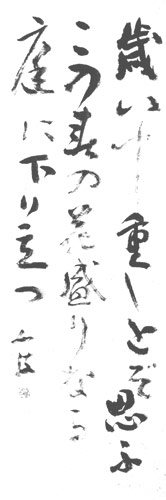 歳い中し重しとぞ思ふ
この春の花盛りなる
庭に下り立つ